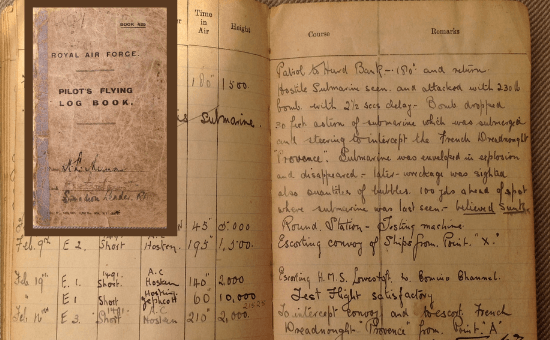 BOOK 425
ROYAL AIR FORCE.
PILOT'S FLYING
LOG BOOK.
Squadron Leader R
Time
in
Air
Height
180" 1500.
Submarine.
45" 5000
Feb. 9th E 2. Short Hoskan 195" 1,500.
Feb 19th E. 1. Short. A.C Hoskan 140" 2,000
" E1 Short Jephcott 60 10,000
Feb 16th E 3. Short A.C Hoskan 210" 2,000.
Course Remarks
Patrol to Hurd Bank — 180° and return.
Hostile Submarine seen and attacked with 230 lb
bomb with 2½ secs delay — Bomb dropped
50 feet astern of submarine which was submerged
and steering to intercept the French Dreadnought
"Provence". Submarine was enveloped in explosion
and disappeared — later wreckage was sighted
also quantities of bubbles. 100 yds ahead of spot
where submarine was last seen — believed Sunk
Round Station — Testing machine.
Escorting convoy of Ships from Point "X."
Escorting H.M.S. Lowestoft to Channel.
Test Flight satisfactory
To intercept convoy and to escort French
Dreadnought "Provence" from Point "A"